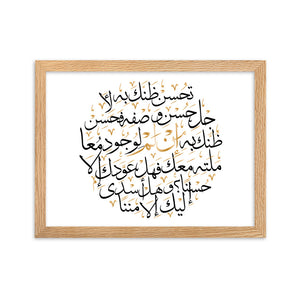 تحسن ظنك به لا
جل حسن وصفه فحسن
ظنك به إن لم لوجود معا
ملته معك فهل عودك إلا
حسنا؟ وهل أسدى
إليك إلا مننا